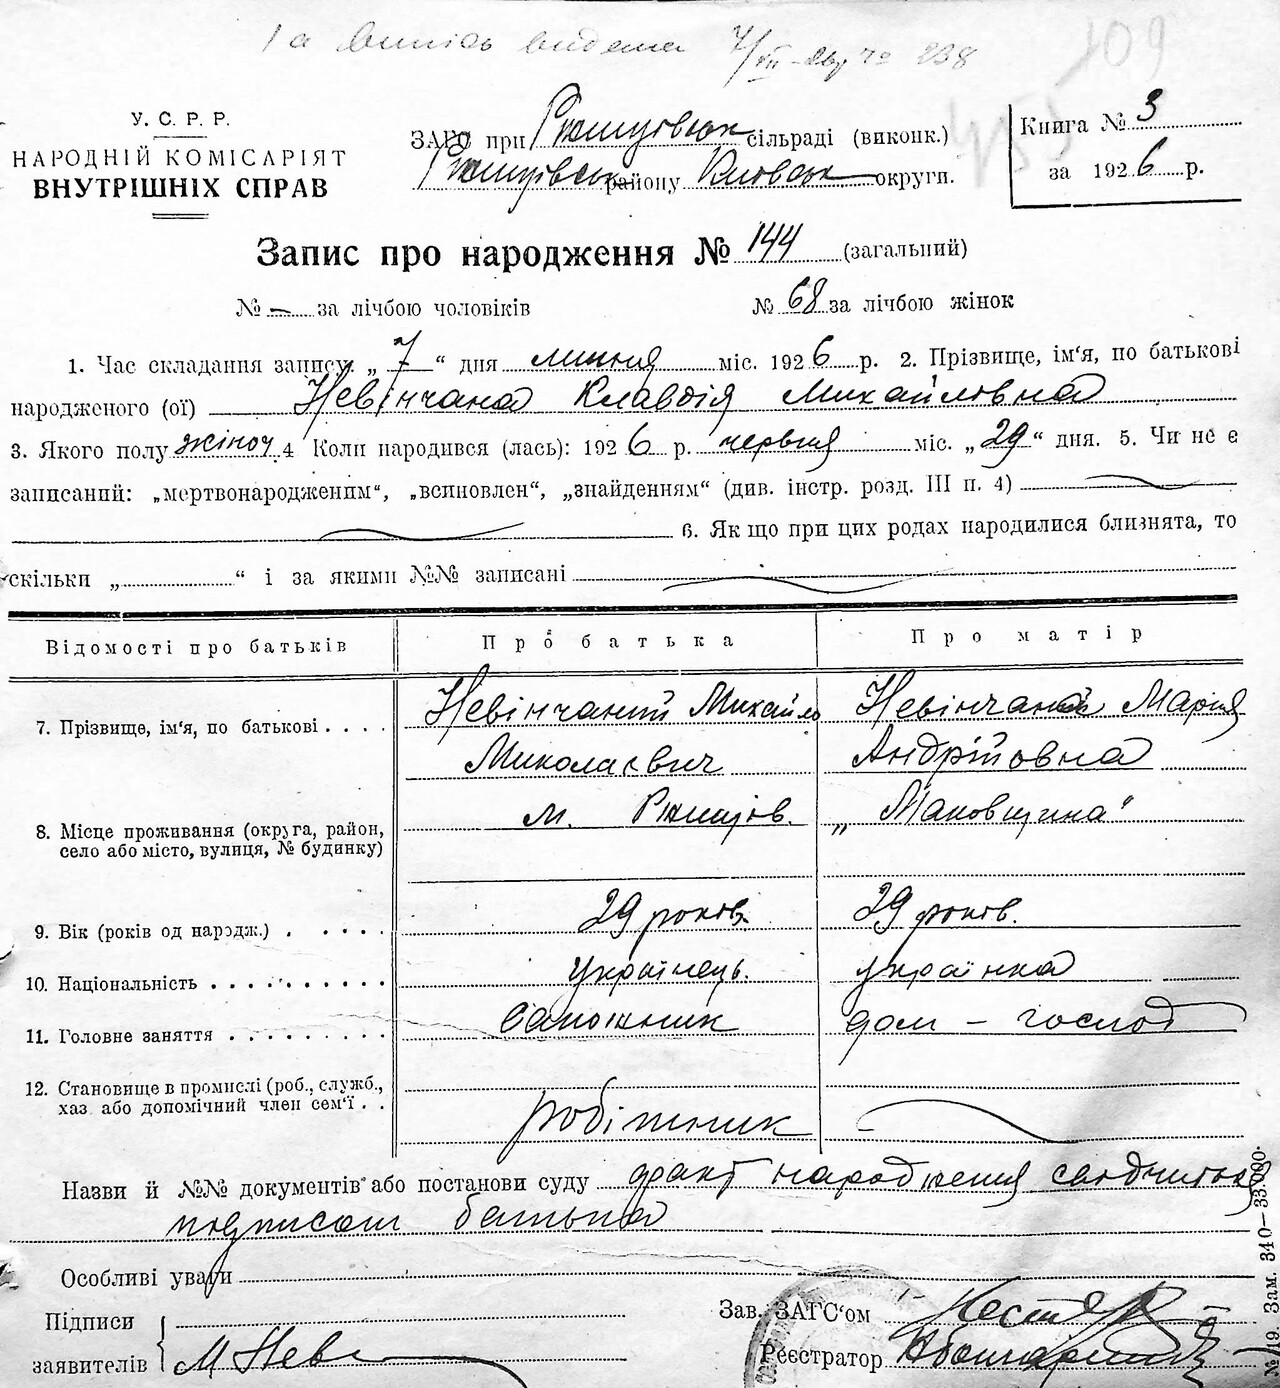 1а Випись видана 7/VII-
109
У. С. Р. Р.
НАРОДНІЙ КОМІСАРІЯТ
ВНУТРІШНІХ СПРАВ
ЗАГС при Ржищівськ сільраді (виконк.)
Ржищівськ району Київськ округи.
Книга № 3
за 1926 р.
Запис про народження № 144 (загальний)
№ – за лічбою чоловіків № 68 за лічбою жінок
1. Час складання запису „ 7 “ дня липня міс. 1926 р. 2. Прізвище, ім'я, по батькові
народженого (ої) Невінчана Клавдія Михайловна
3. Якого полу жіноч. 4 Коли народився (лась): 1926 р. червня міс. „29“ дня. 5. Чи не є
записаний: „мертвонародженим“, „всиновлен“, „знайденням“ (див. інстр. розд. III п. 4)
6. Як що при цих родах народилися близнята, то
скільки „ “ і за якими №№ записані
Відомості про батьків Про батька Про матір
7. Прізвище, ім'я, по батькові . . . . Невінчаний Михайло Невінчаной Мария
Миколаєвич Андрійовна
8. Місце проживання (округа, район, село або місто, вулиця, № будинку) м. Ржищів. „Маковщина“
9. Вік (років од народж.) . . . . . 29 років. 29 років.
10. Національність . . . . . . . . . . Українець. українка
11. Головне заняття . . . . . . . . . Сапожник дом – господ
12. Становище в промислі (роб., служб.,
хаз або допомічний член сем'ї . . робітник
Назви й №№ документів або постанови суду факт народження свідчиться
подписом батька
Особливі уваги
Підписи
заявителів М Нев
Зав. ЗАГС'ом
Реєстратор
№ 719. Зам. 340—33.000.